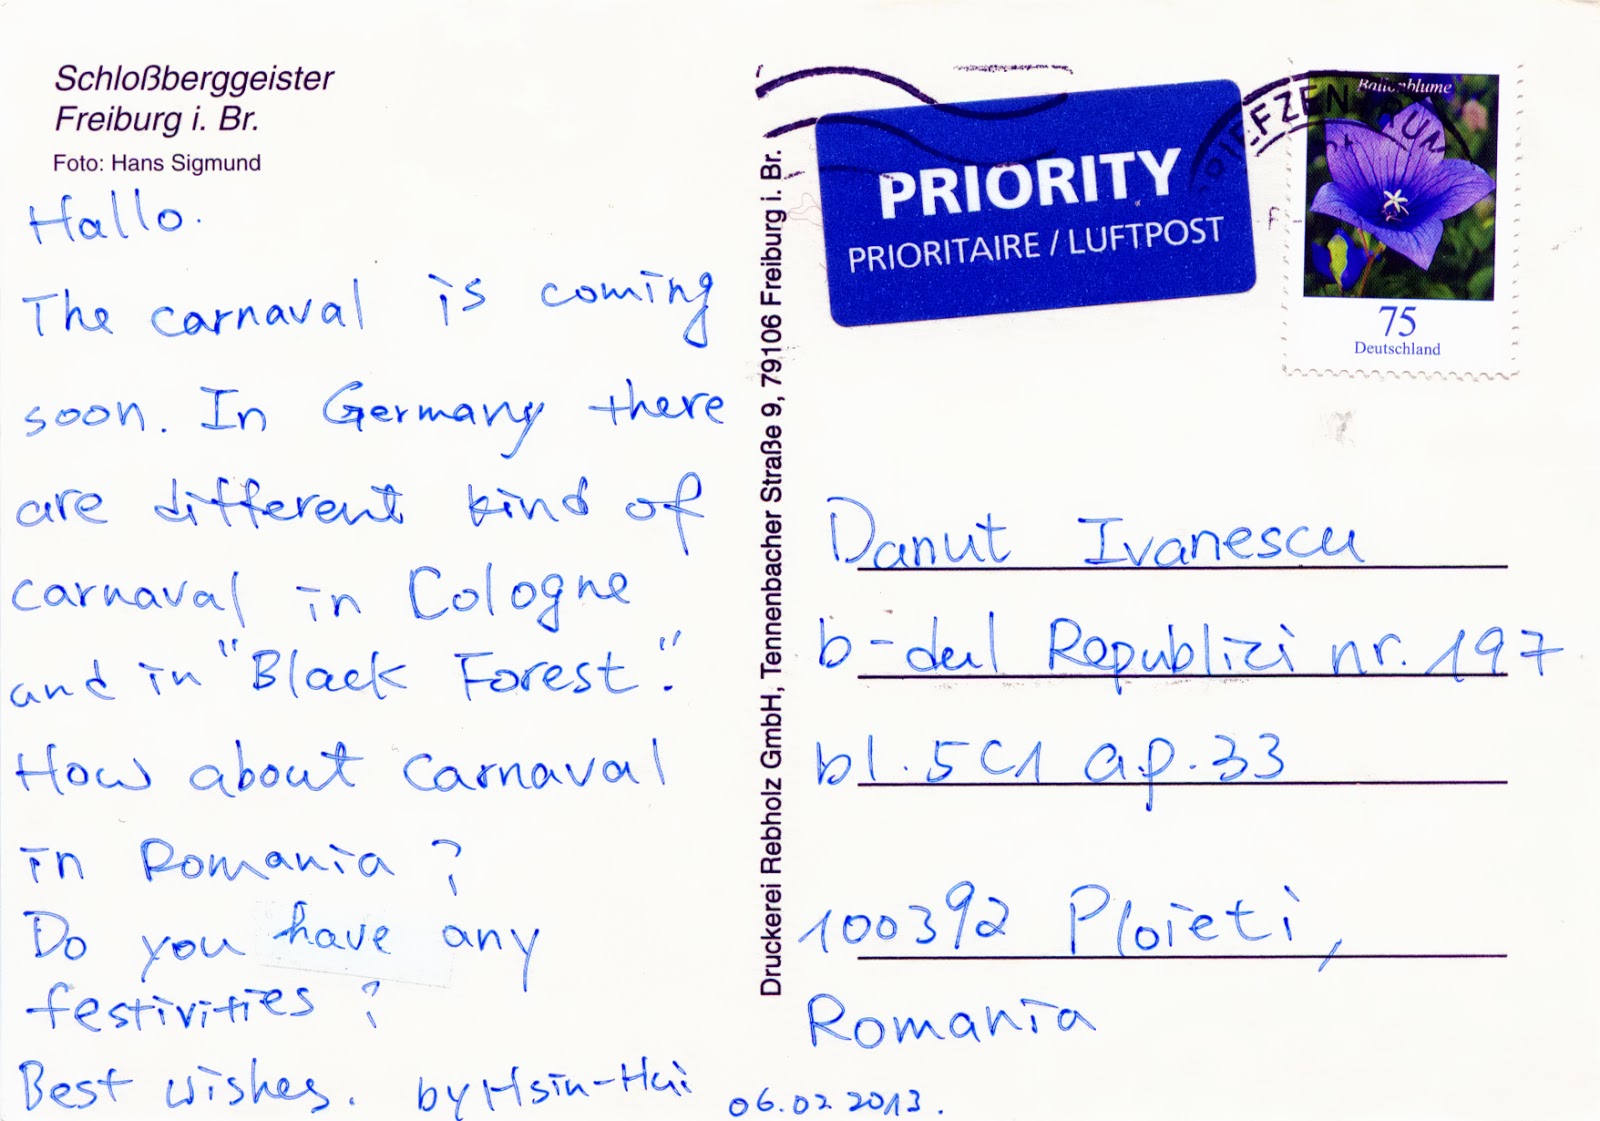 Schloßberggeister
Freiburg i. Br.
Foto: Hans Sigmund
Hallo.
The carnaval is coming
soon. In Germany there
are different kind of
carnaval in Cologne
and in "Black Forest."
How about carnaval
in Romania?
Do you have any
festivities?
Best wishes. by Hsin-Hui
06.02.2013.
Druckerei Rebholz GmbH, Tennenbacher Straße 9, 79106 Freiburg i. Br.
PRIORITY
PRIORITAIRE / LUFTPOST
Ballonblume
75
Deutschland
Danut Ivanescu
b-dul Republizi nr. 197
bl. 5C1 ap. 33
100392 Ploieti,
Romania